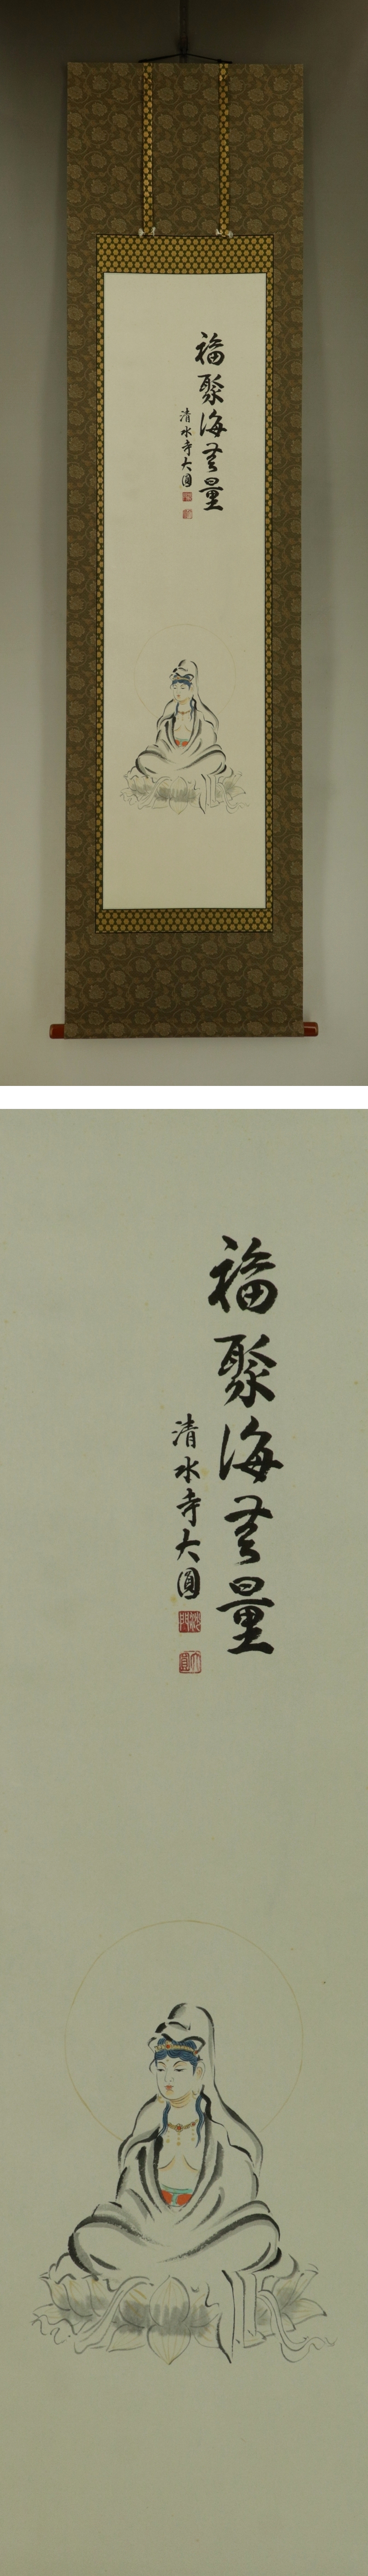 福聚海無量
清水寺大圓
福聚海無量
清水寺大圓